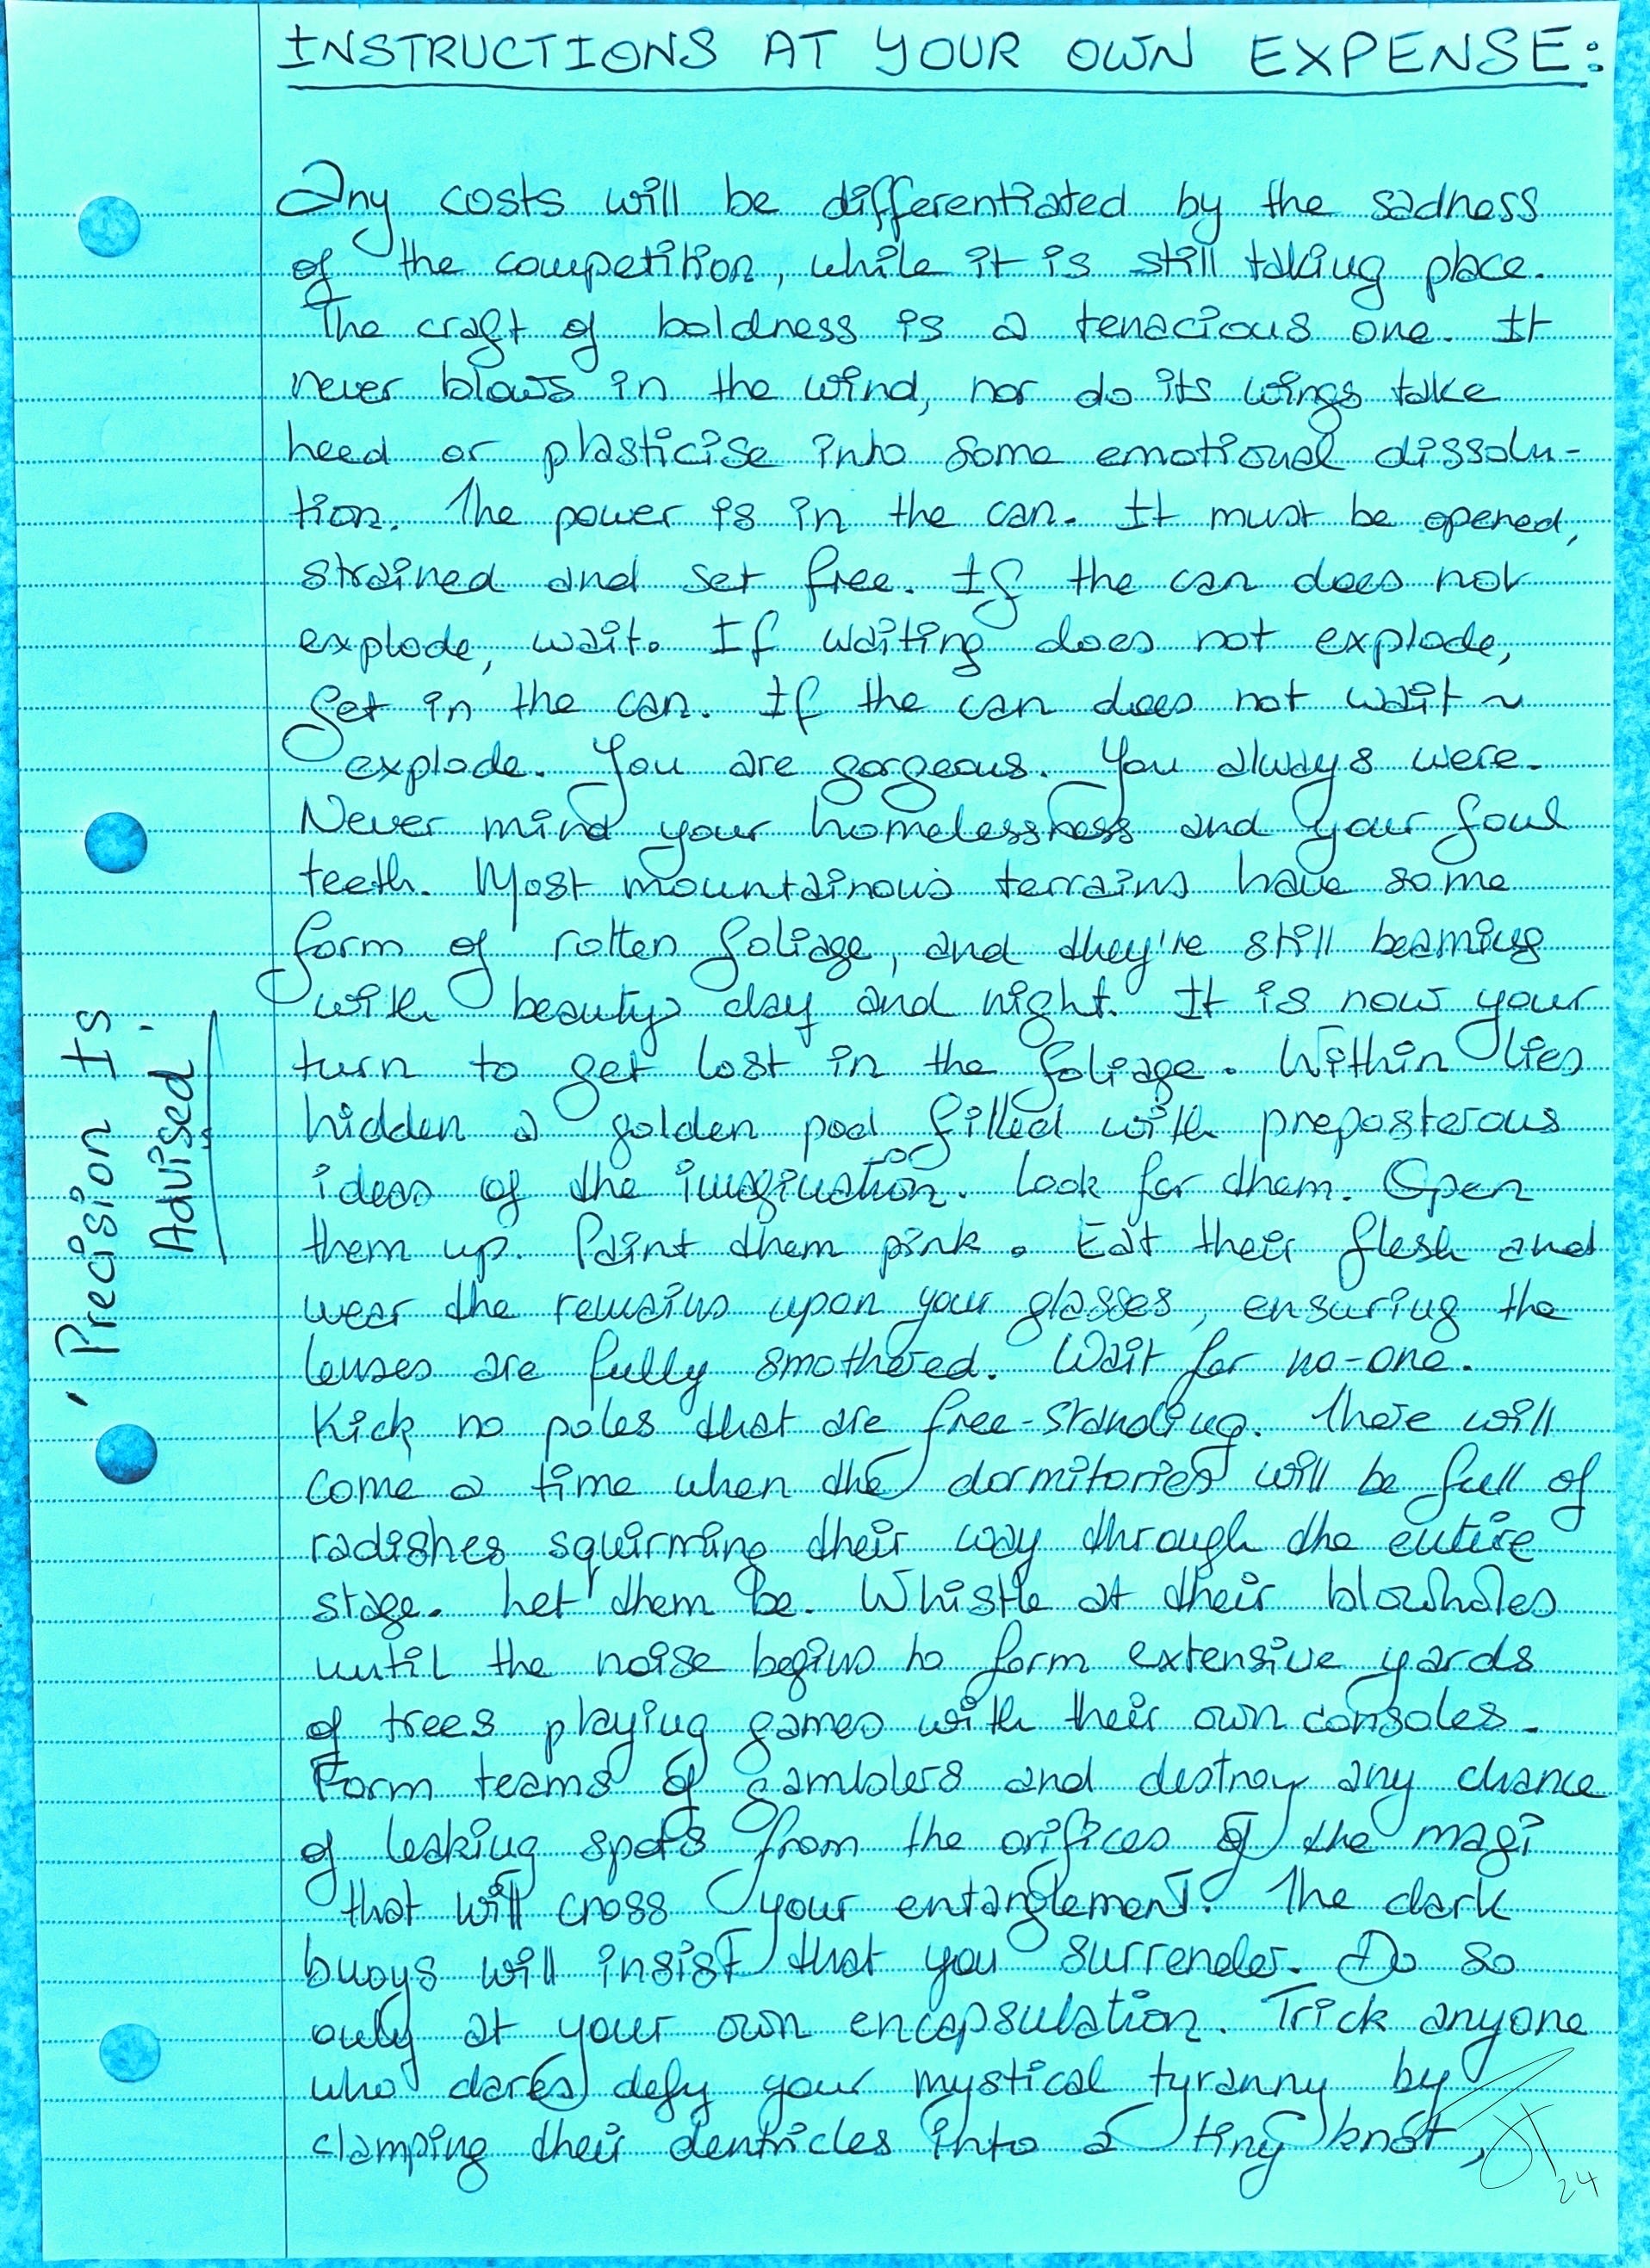 INSTRUCTIONS AT YOUR OWN EXPENSE:
Any costs will be differentiated by the sadness
of the competition, while it is still taking place.
The craft of boldness is a tenacious one. It
never blows in the wind, nor do its wings take
heed or plasticise into some emotional dissolu-
tion. The power is in the can. It must be opened,
strained and set free. If the can does not
explode, wait. If waiting does not explode,
get in the can. If the can does not wait ~
explode. You are gorgeous. You always were.
Never mind your homelessness and your foul
teeth. Most mountainous terrains have some
form of rotten foliage, and they're still beaming
with beauty day and night. It is now your
turn to get lost in the foliage. Within lies
hidden a golden pod filled with preposterous
ideas of the imagination. Look for them. Open
them up. Paint them pink. Eat their flesh and
wear the remains upon your glasses, ensuring the
lenses are fully smothered. Wait for no-one.
Kick no poles that are free-standing. There will
come a time when the dormitories will be full of
radishes squirming their way through the entire
stage. Let them be. Whistle at their blowholes
until the noise begins to form extensive yards
of trees playing games with their own consoles.
Form teams of gamblers and destroy any chance
of leaking spots from the orifices of the magi
that will cross your entanglement. The dark
buoys will insist that you surrender. Do so
only at your own encapsulation. Trick anyone
who dares defy your mystical tyranny by
clamping their denticles into a tiny knot,
24
'Precision Is
Advised'